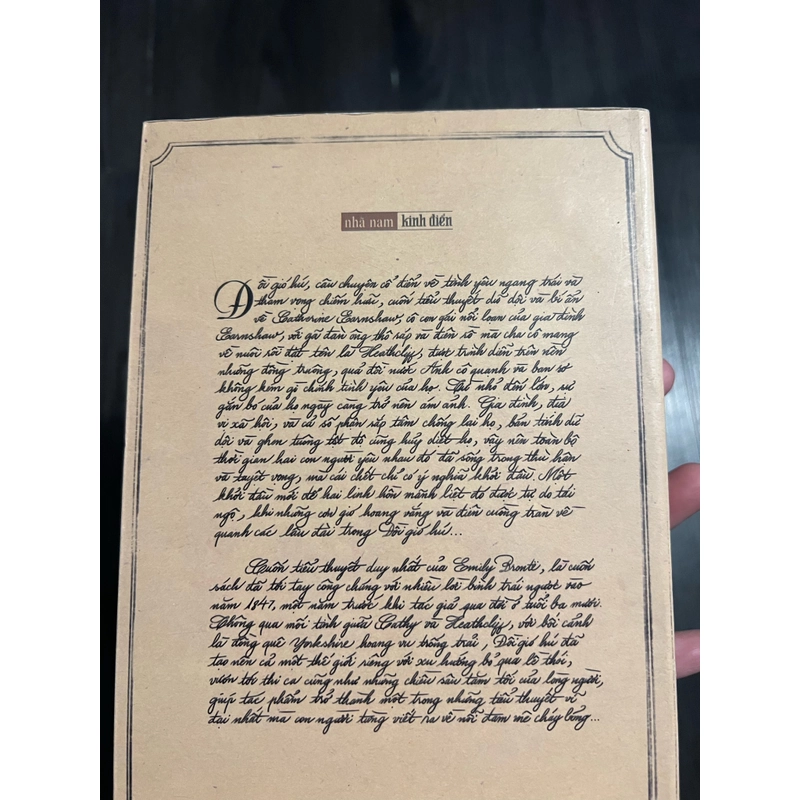 nhã nam kinh điển
Đồi gió hú, câu chuyện cổ điển về tình yêu ngang trái và
tham vọng chiếm hữu, cuốn tiểu thuyết dữ dội và bí ẩn
về Catherine Earnshaw, cô con gái nổi loạn của gia đình
Earnshaw, với gã đàn ông thô ráp và điên rồ mà cha cô mang
về nuôi rồi đặt tên là Heathcliff, được trình diễn trên nền
những đồng truông, quả đồi nước Anh cô quạnh và ban sơ
không kém gì chính tình yêu của họ. Từ nhỏ đến lớn, sự
gắn bó của họ ngày càng trở nên ám ảnh. Gia đình, địa
vị xã hội, và cả số phận rắp tâm chống lại họ, bản tính dữ
dội và ghen tuông tột độ cũng hủy diệt họ, vậy nên toàn bộ
thời gian hai con người yêu nhau đó đã sống trong thù hận
và tuyệt vọng, mà cái chết chỉ có ý nghĩa khởi đầu. Một
khởi đầu mới để hai linh hồn mãnh liệt đó được tự do tái
ngộ, khi những cơn gió hoang vắng và điên cuồng tràn về
quanh các lâu đài trong Đồi gió hú...
Cuốn tiểu thuyết duy nhất của Emily Brontë, là cuốn
sách đã tới tay công chúng với nhiều lời bình trái ngược vào
năm 1847, một năm trước khi tác giả qua đời ở tuổi ba mươi.
Thông qua mối tình giữa Cathy và Heathcliff, với bối cảnh
là đồng quê Yorkshire hoang vu trống trải, Đồi gió hú đã
tạo nên cả một thế giới riêng với xu hướng bỏ qua lề thói,
vươn tới thi ca cũng như những chiều sâu tăm tối của lòng người,
giúp tác phẩm trở thành một trong những tiểu thuyết vĩ
đại nhất mà con người từng viết ra về nỗi đam mê cháy bỏng...